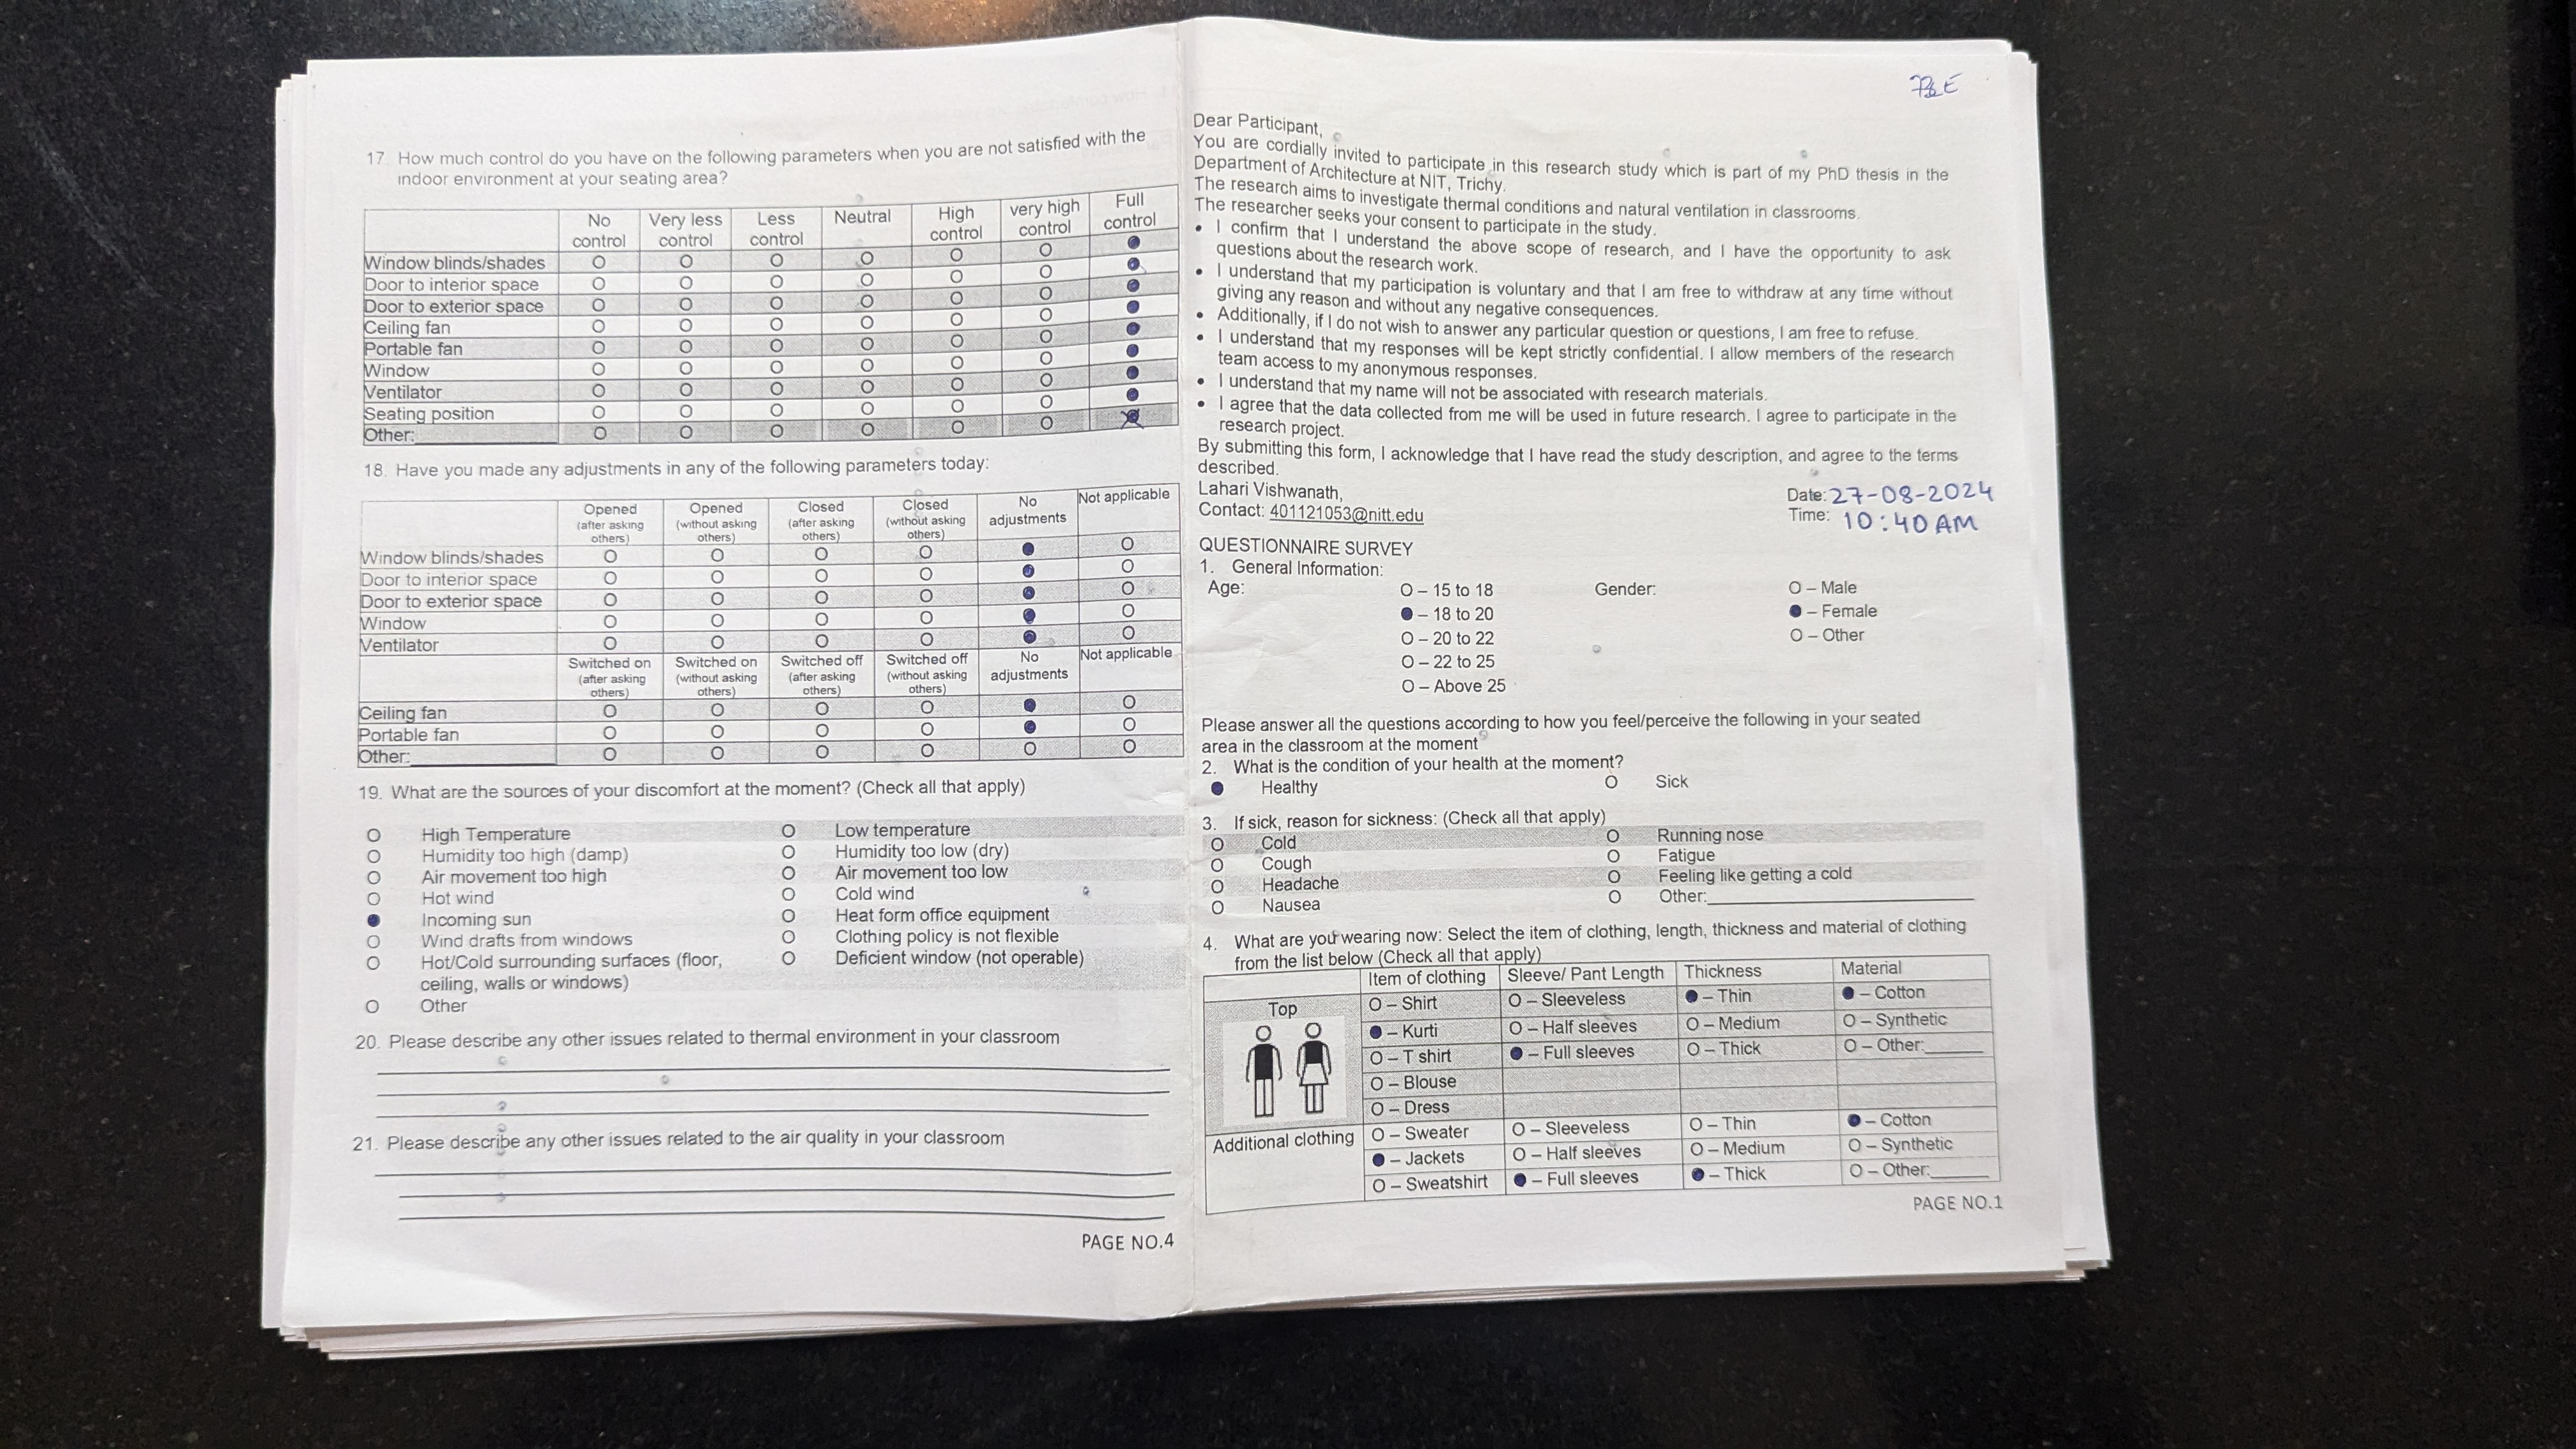 17. How much control do you have on the following parameters when you are not satisfied with the
indoor environment at your seating area?
No control Very less control Less control Neutral High control very high control Full control
Window blinds/shades O O O O O O ●
Door to interior space O O O O O O ●
Door to exterior space O O O O O O ●
Ceiling fan O O O O O O ●
Portable fan O O O O O O ●
Window O O O O O O ●
Ventilator O O O O O O ●
Seating position O O O O O O ●
Other: O O O O O O
18. Have you made any adjustments in any of the following parameters today:
Opened (after asking others) Opened (without asking others) Closed (after asking others) Closed (without asking others) No adjustments Not applicable
Window blinds/shades O O O O ● O
Door to interior space O O O O ● O
Door to exterior space O O O O ● O
Window O O O O ● O
Ventilator O O O O ● O
Switched on (after asking others) Switched on (without asking others) Switched off (after asking others) Switched off (without asking others) No adjustments Not applicable
Ceiling fan O O O O ● O
Portable fan O O O O ● O
Other: O O O O O O
19. What are the sources of your discomfort at the moment? (Check all that apply)
O High Temperature O Low temperature
O Humidity too high (damp) O Humidity too low (dry)
O Air movement too high O Air movement too low
O Hot wind O Cold wind
● Incoming sun O Heat form office equipment
O Wind drafts from windows O Clothing policy is not flexible
O Hot/Cold surrounding surfaces (floor, O Deficient window (not operable)
ceiling, walls or windows)
O Other
20. Please describe any other issues related to thermal environment in your classroom
21. Please describe any other issues related to the air quality in your classroom
PAGE NO.4
Dear Participant,
You are cordially invited to participate in this research study which is part of my PhD thesis in the
Department of Architecture at NIT, Trichy.
The research aims to investigate thermal conditions and natural ventilation in classrooms.
The researcher seeks your consent to participate in the study.
• I confirm that I understand the above scope of research, and I have the opportunity to ask
questions about the research work.
• I understand that my participation is voluntary and that I am free to withdraw at any time without
giving any reason and without any negative consequences.
• Additionally, if I do not wish to answer any particular question or questions, I am free to refuse.
• I understand that my responses will be kept strictly confidential. I allow members of the research
team access to my anonymous responses.
• I understand that my name will not be associated with research materials.
• I agree that the data collected from me will be used in future research. I agree to participate in the
research project.
By submitting this form, I acknowledge that I have read the study description, and agree to the terms
described.
Lahari Vishwanath,
Contact: 401121053@nitt.edu
Date: 27-08-2024
Time: 10:40 AM
QUESTIONNAIRE SURVEY
1. General Information:
Age: O – 15 to 18 Gender: O – Male
● – 18 to 20 ● – Female
O – 20 to 22 O – Other
O – 22 to 25
O – Above 25
Please answer all the questions according to how you feel/perceive the following in your seated
area in the classroom at the moment
2. What is the condition of your health at the moment?
● Healthy O Sick
3. If sick, reason for sickness: (Check all that apply)
O Cold O Running nose
O Cough O Fatigue
O Headache O Feeling like getting a cold
O Nausea O Other:
4. What are you wearing now: Select the item of clothing, length, thickness and material of clothing
from the list below (Check all that apply)
Item of clothing Sleeve/ Pant Length Thickness Material
Top O – Shirt O – Sleeveless ● – Thin ● – Cotton
● – Kurti O – Half sleeves O – Medium O – Synthetic
O – T shirt ● – Full sleeves O – Thick O – Other:
O – Blouse
O – Dress
Additional clothing O – Sweater O – Sleeveless O – Thin ● – Cotton
● – Jackets O – Half sleeves O – Medium O – Synthetic
O – Sweatshirt ● – Full sleeves ● – Thick O – Other:
PAGE NO.1